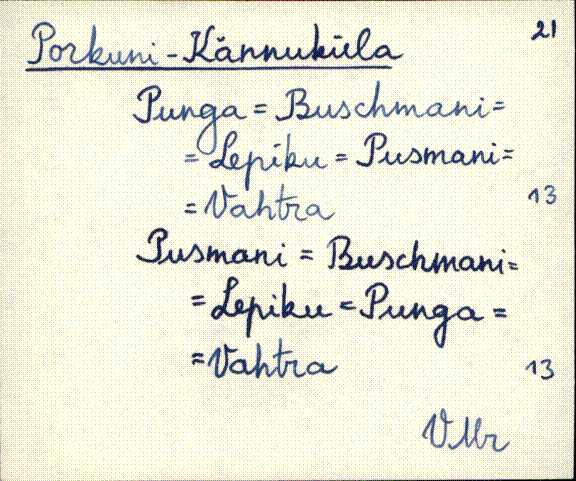 21
Porkuni - Kännuküla
Punga = Buschmani =
= Lepiku = Pusmani =
= Vahtra 13
Pusmani = Buschmani =
= Lepiku = Punga =
= Vahtra 13